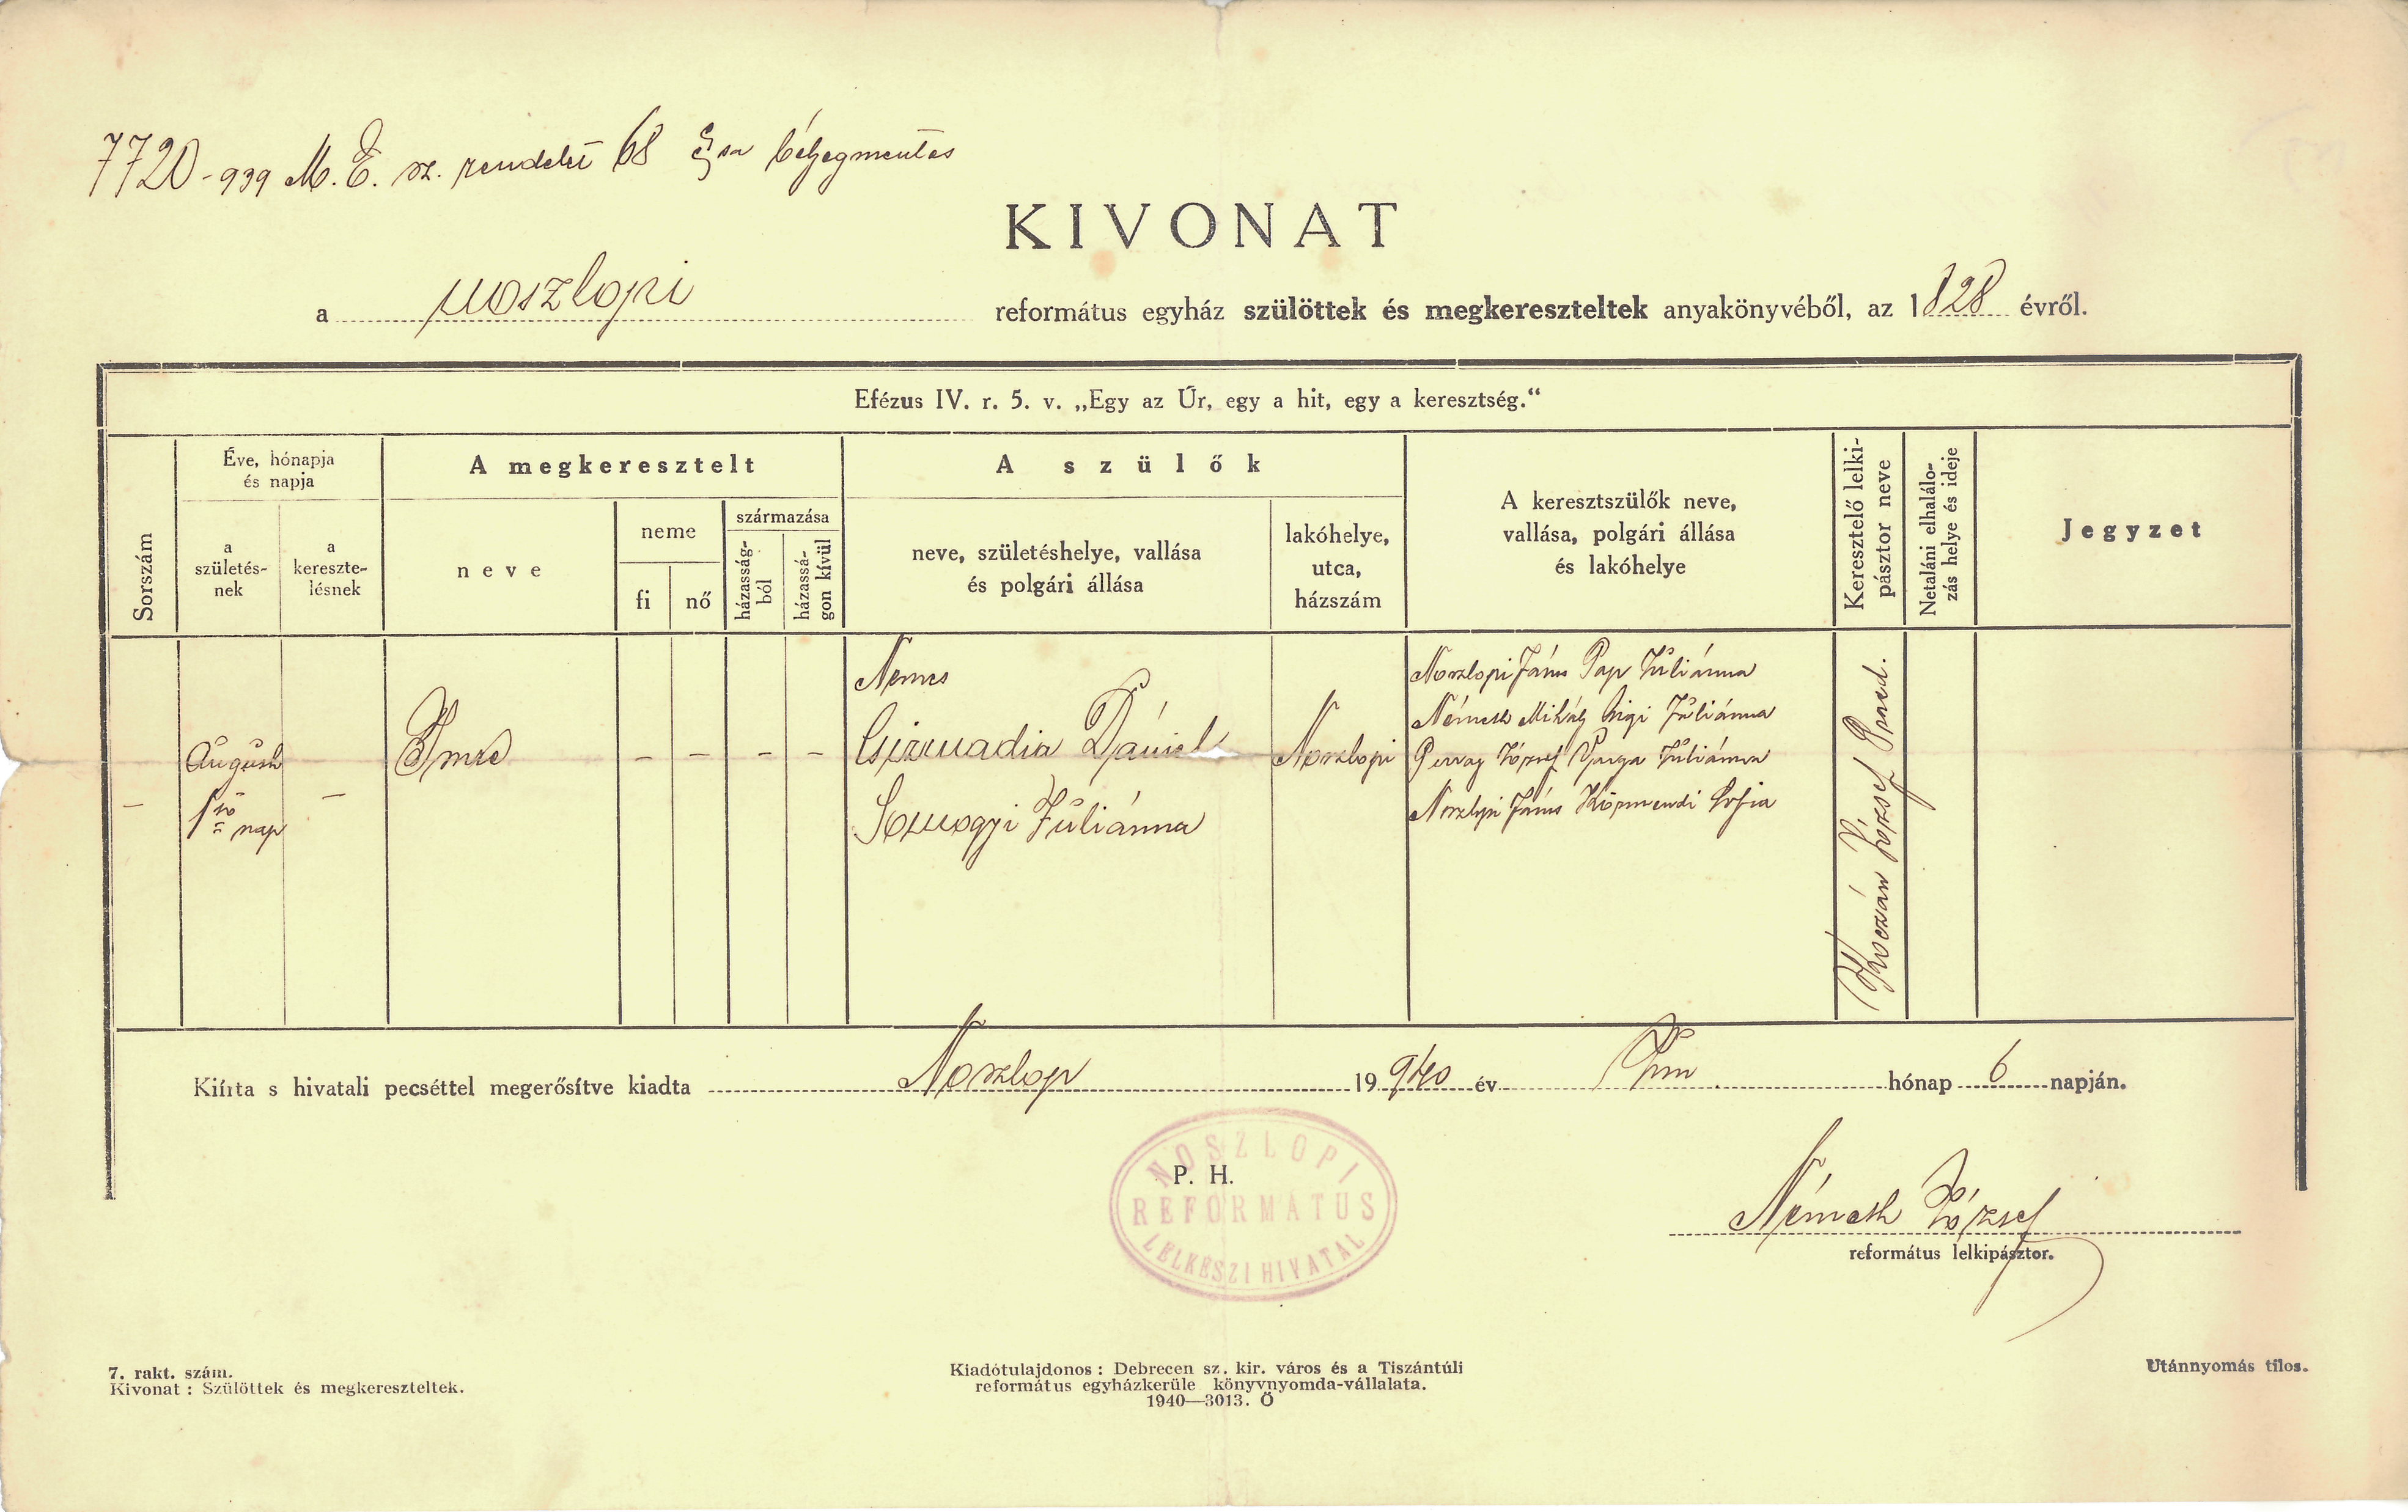 7720-939 M. E. sz. rendelet 68 §sa bélyegmentes
KIVONAT
a noszlopi református egyház szülöttek és megkereszteltek anyakönyvéből, az 1828 évről.
Efézus IV. r. 5. v. „Egy az Úr, egy a hit, egy a keresztség.“
Sorszám
Éve, hónapja
és napja
a
születés-
nek
a
keresztе-
lésnek
A megkeresztelt
neve
neme
fi
nő
származása
házasság-
ból
házassá-
gon kívül
A szülők
neve, születéshelye, vallása
és polgári állása
lakóhelye,
utca,
házszám
A keresztszülők neve,
vallása, polgári állása
és lakóhelye
Keresztelő lelki-
pásztor neve
Netaláni elhalálo-
zás helye és ideje
Jegyzet
–
August
1ső nap
–
Imre
– – – –
Nemes
Csizmadia Dániel
Somogyi Juliánna
Noszlopi
Noszlopi János Pap Juliánna
Németh Mihály Juliánna
József Varga Juliánna
Noszlopi János Körmendi Sofia
József Praed.
Kiírta s hivatali pecséttel megerősítve kiadta Noszlop 19 940 év hónap 6 napján.
P. H.
NOSZLOPI
REFORMÁTUS
LELKÉSZI HIVATAL
Németh József
református lelkipásztor.
7. rakt. szám.
Kivonat : Szülöttek és megkereszteltek.
Kiadótulajdonos : Debrecen sz. kir. város és a Tiszántúli
református egyházkerüle könyvnyomda-vállalata.
1940—3013. Ő
Utánnyomás tilos.